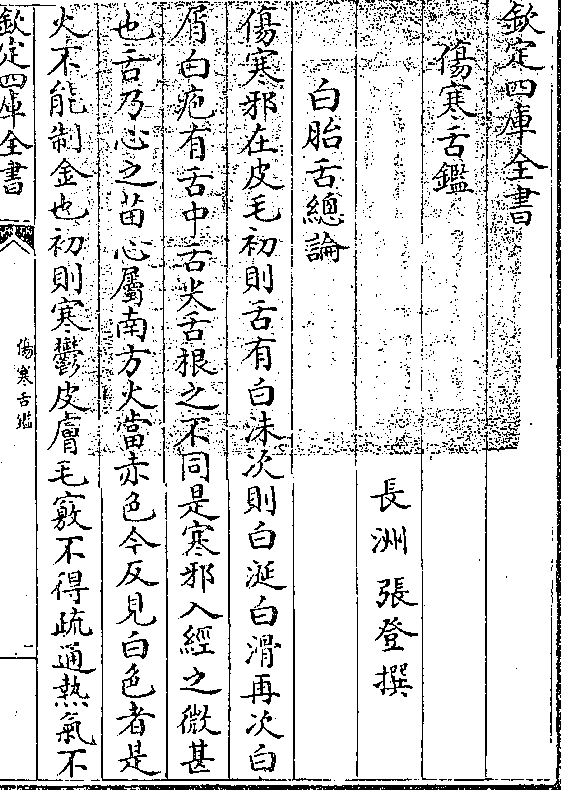 欽定四庫全書
傷寒舌鑑
長洲張登撰
白胎舌總論
傷寒邪在皮毛初則舌有白沫次則白涎白滑再次白
屑白疱有舌中舌尖舌根之不同是寒邪入經之微甚
也舌乃心之苗心屬南方火當赤色今反見白色者是
火不能制金也初則寒鬱皮膚毛竅不得疏通熱氣不
欽定四庫全書
傷寒舌鑑
一